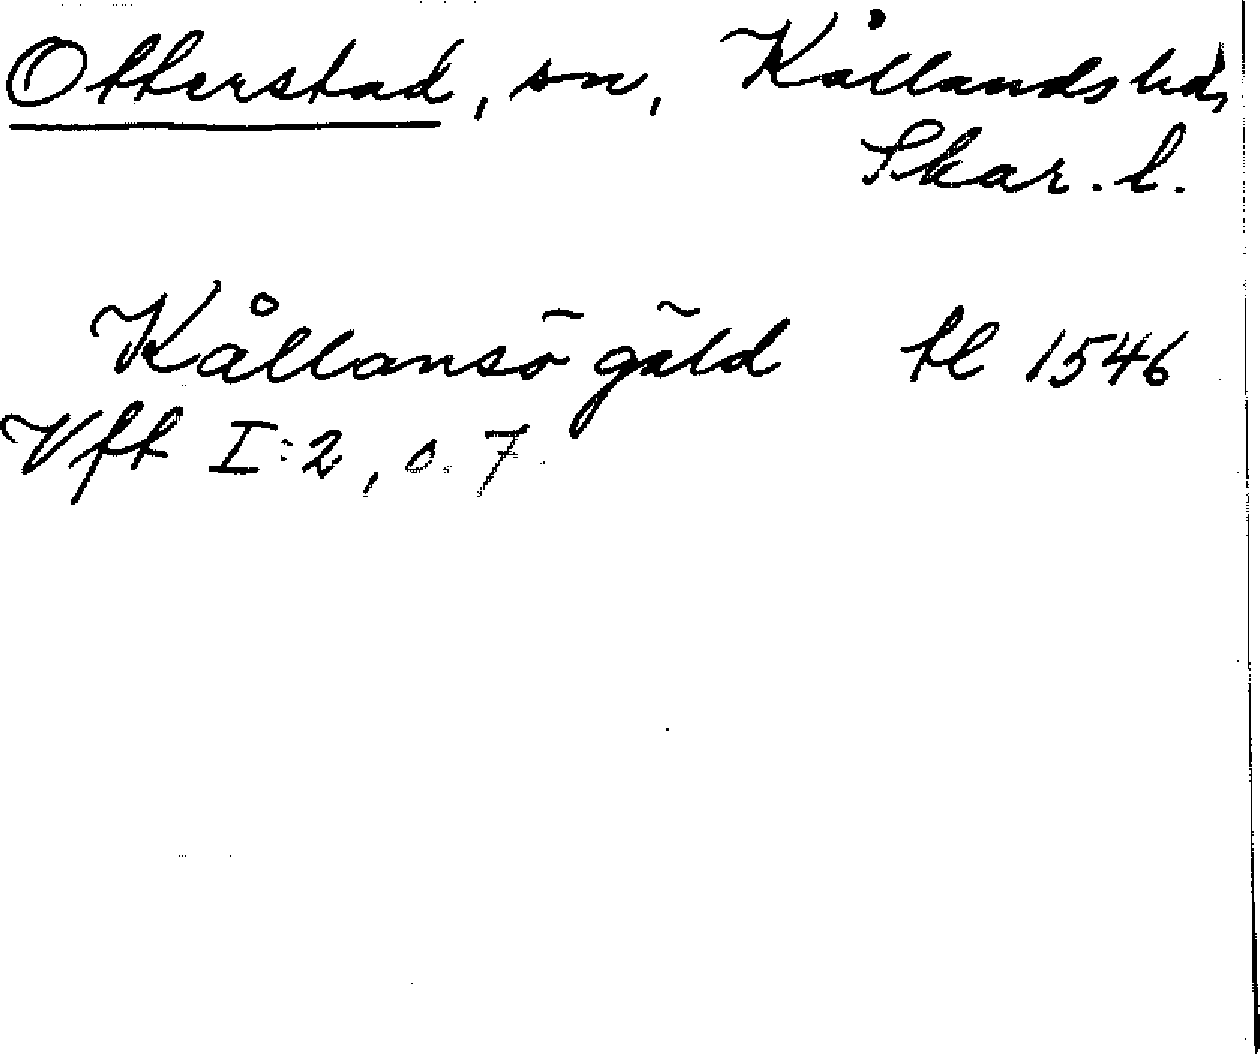 Otterstad, sn, Kållands hd,
Skar. l.
Kållansö gäld tl 1546
Vft I:2, s. 7